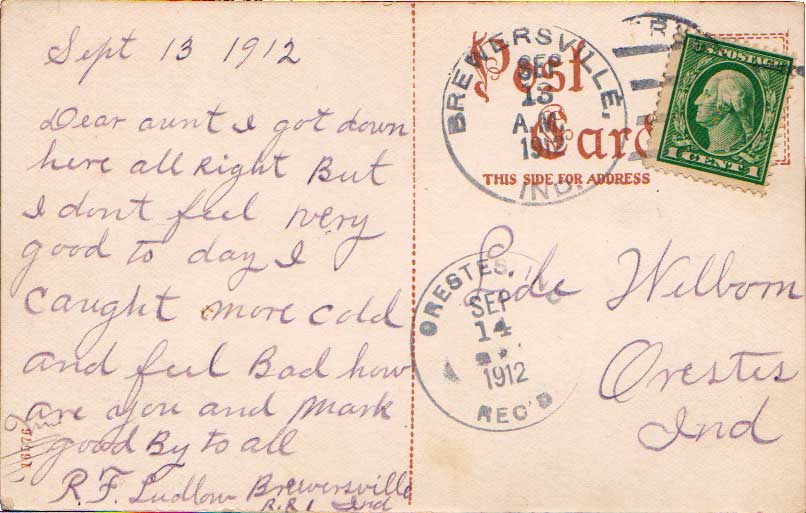 Sept 13 1912
Dear aunt I got down
here all Right But
I dont feel very
good to day I
caught more cold
and feel Bad how
are you and Mark
good By to all
R. F. Ludlow Brewersville
R.R 1 Ind
16576
Post
Card
THIS SIDE FOR ADDRESS
BREWERSVILLE, IND.
SEP
13
A.M.
1912
U.S. POSTAGE
1 CENT 1
ORESTES, IND
SEP
14
1912
REC'D
Lode Welborn
Orestes
Ind